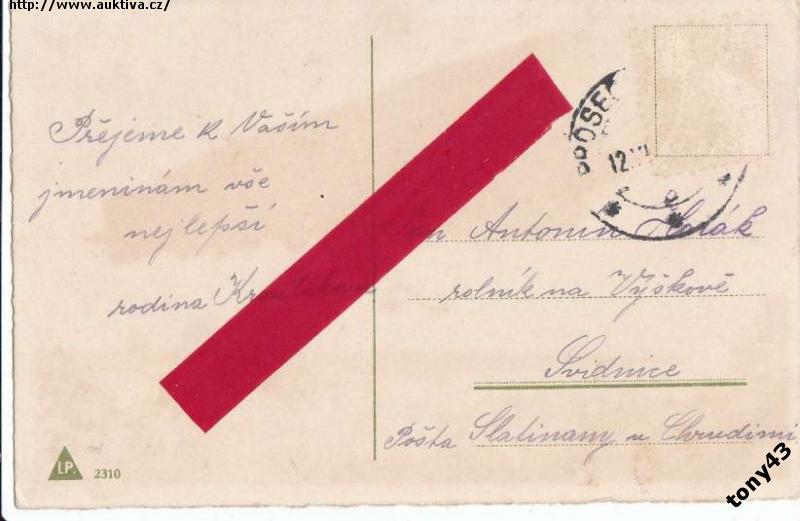 http://www.auktiva.cz/
Přejeme k Vaším
jmeninám vše
nejlepší
rodina
BROSE
12.
Antonín
rolník na Výškově
Svidnice
Pošta Slatinany u Chrudimi
LP.
2310
tony43